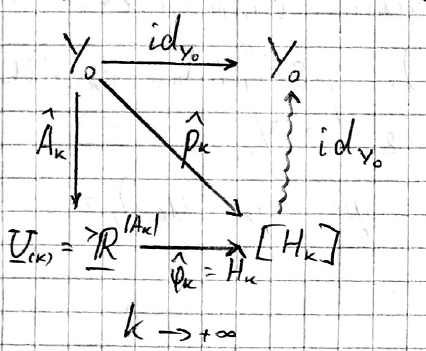 Y₀ id_{Y₀} Y₀
Â_k p̂_k id_{Y₀}
U_{(k)} = ℝ^{|A_k|} φ̂_k = Ĥ_k [H_k]
k → +∞